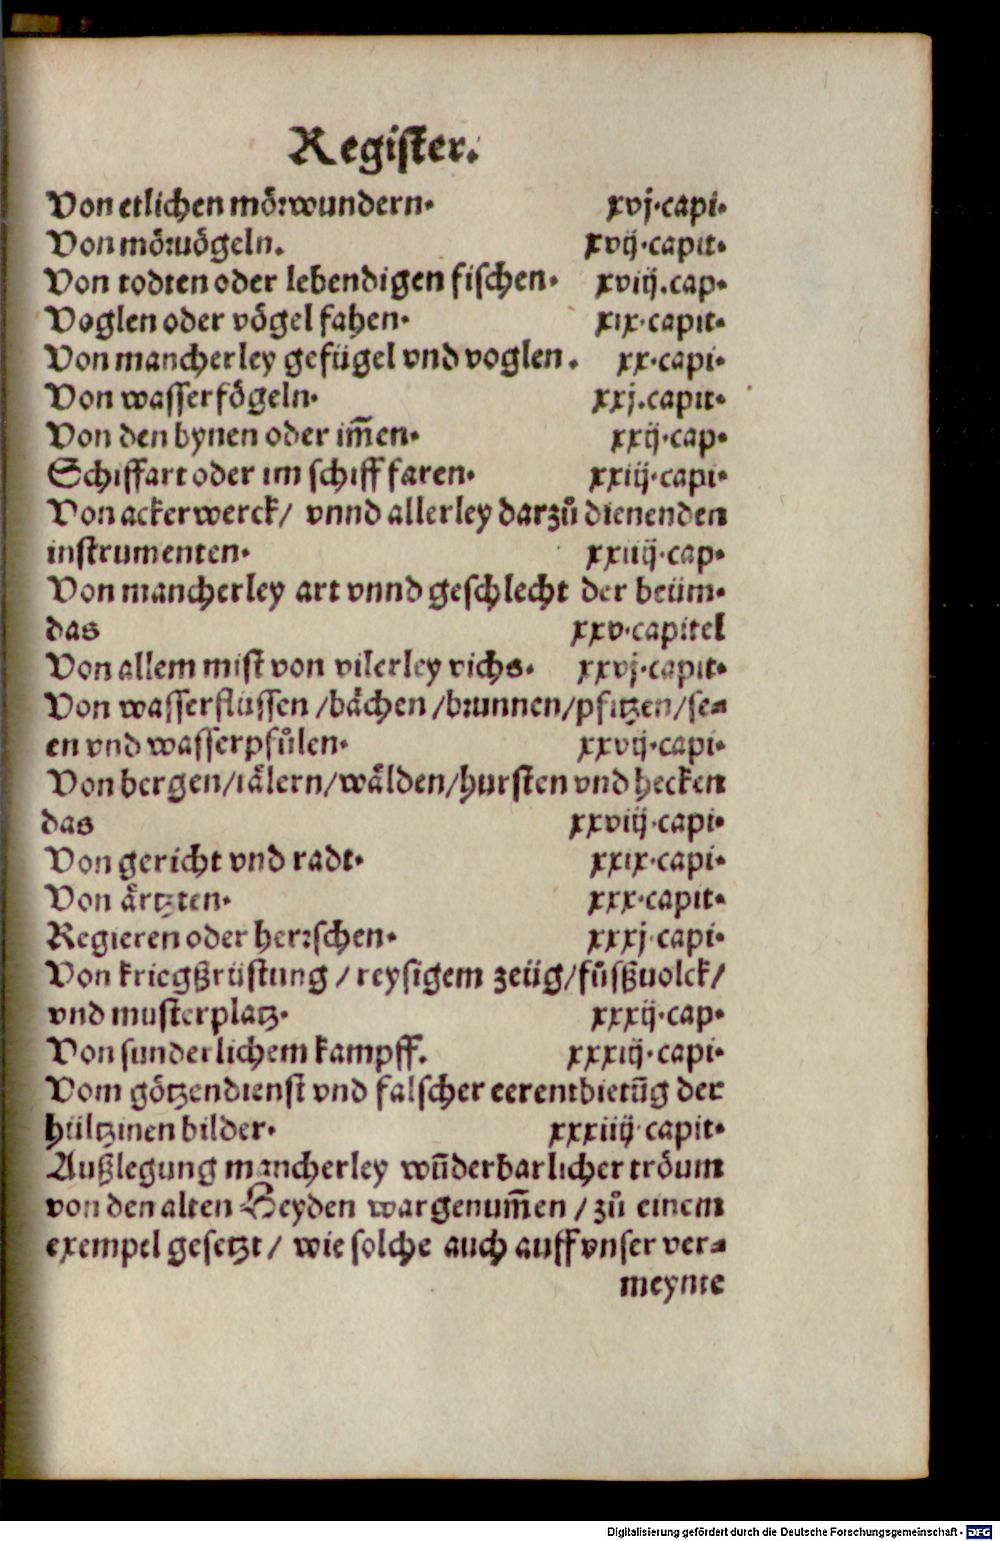 Register.
Von etlichen mörwundern. xvj.capi.
Von mörvögeln. xvij.capit.
Von todten oder lebendigen fischen. xviij.cap.
Voglen oder vögel fahen. xix.capit.
Von mancherley gefügel vnd voglen. xx.capi.
Von wasserfögeln. xxj.capit.
Von den bynen oder im̄en. xxij.cap.
Schiffart oder im schiff faren. xxiij.capi.
Von ackerwerck/ vnnd allerley darzů dienenden
instrumenten. xxiiij.cap.
Von mancherley art vnnd geschlecht der beüm.
das xxv.capitel
Von allem mist von vilerley vichs. xxvj.capit.
Von wasserflüssen /bächen /brunnen/pfitzen/se-
en vnd wasserpfůlen. xxvij.capi.
Von bergen/tälern/wälden/hursten vnd hecken
das xxviij.capi.
Von gericht vnd radt. xxix.capi.
Von ärtzten. xxx.capit.
Regieren oder herrschen. xxxj.capi.
Von kriegßrüstung /reysigem zeüg/fůßuolck/
vnd musterplatz. xxxij.cap.
Von sunderlichem kampff. xxxiij.capi.
Vom götzendienst vnd falscher eerentbietūg der
hültzinen bilder. xxxiiij capit.
Außlegung mancherley wūderbarlicher tröum
von den alten Heyden wargenum̄en /zů einem
exempel gesetzt/ wie solche auch auff vnser ver-
meynte
Digitalisierung gefördert durch die Deutsche Forschungsgemeinschaft - DFG